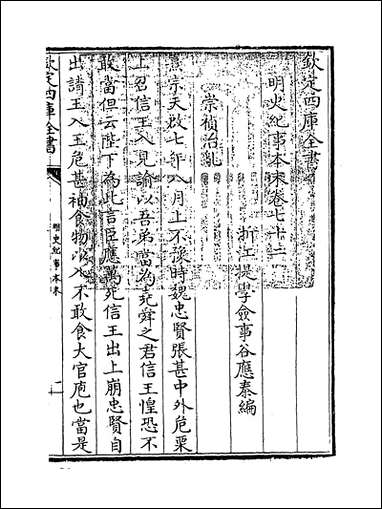 欽定四庫全書
明史紀事本末卷七十二
浙江提學僉事谷應泰編
崇禎治亂
熹宗天啟七年八月上不豫時魏忠賢張甚中外危栗
上召信王入見諭以吾弟當為堯舜之君信王惶恐不
敢當但云陛下為此信臣應萬死信王出上崩忠賢自
出請王入王危甚袖食物以入不敢食大官庖也當是
欽定四庫全書
明史紀事本末
一